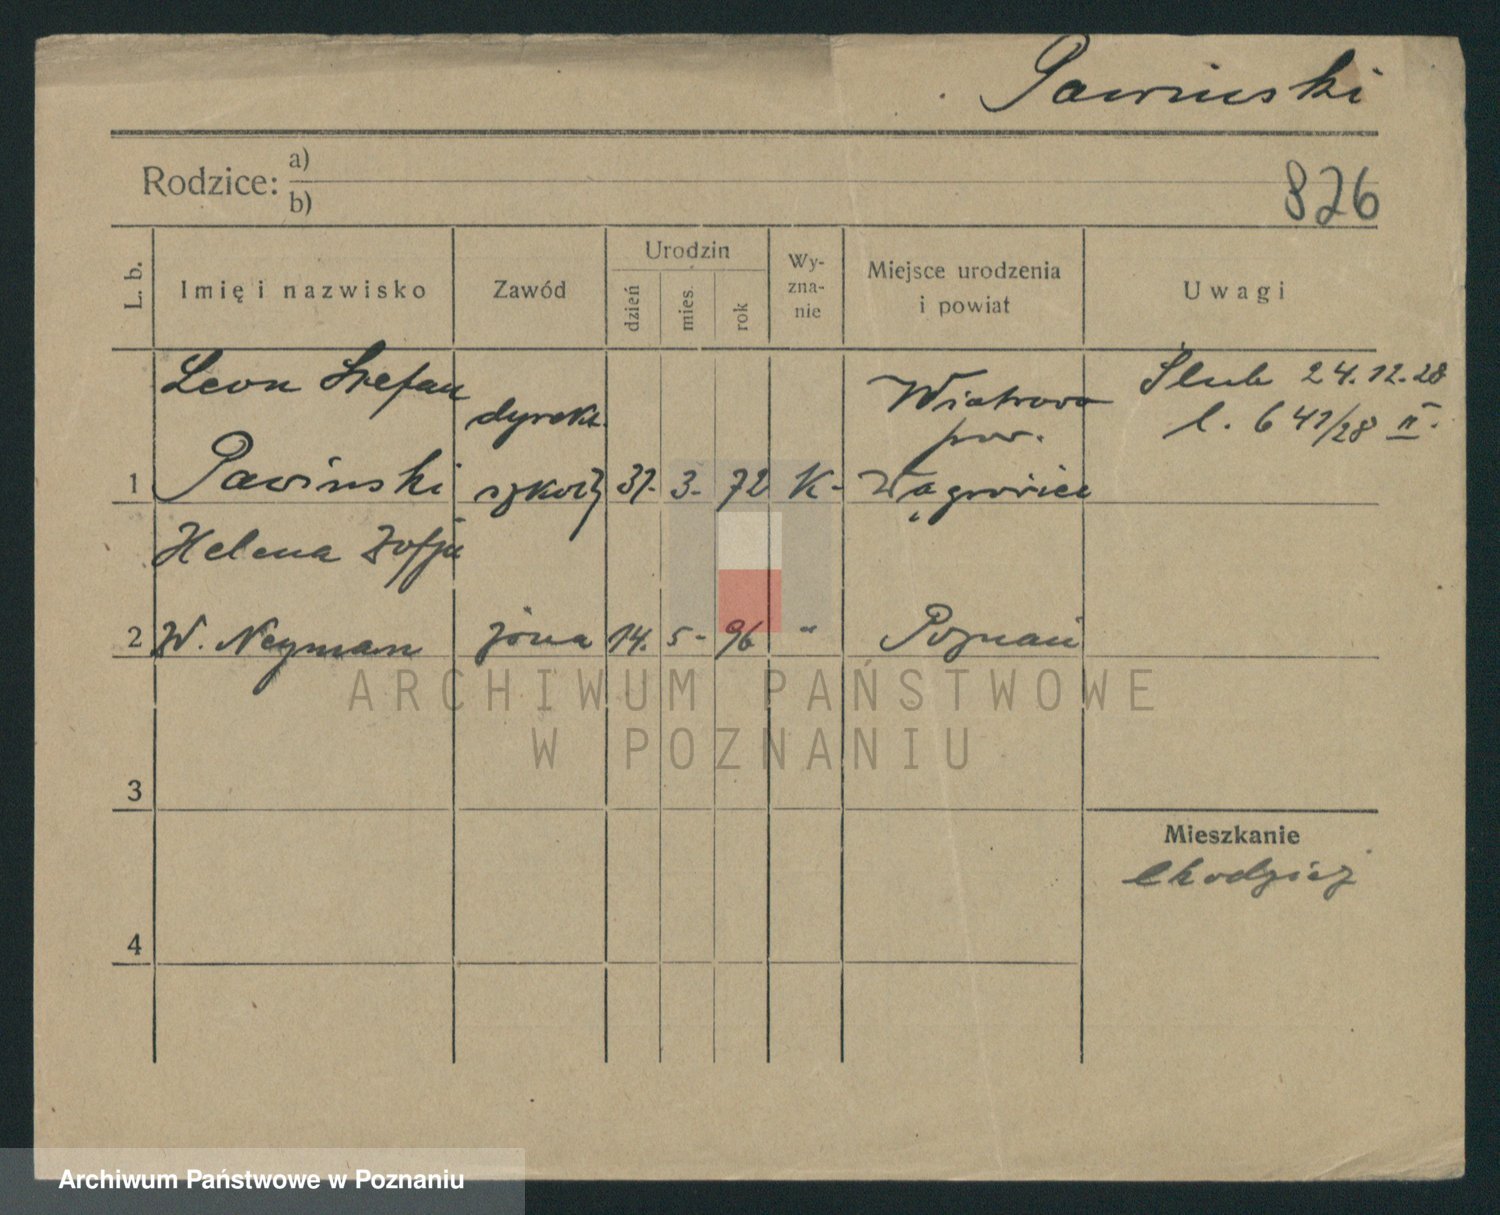 Pawinski
Rodzice: a)
b)
826
L. b.
Imię i nazwisko
Zawód
Urodzin
dzień
mies.
rok
Wy-
zna-
nie
Miejsce urodzenia
i powiat
Uwagi
Leon Stefan
Pawinski
dyrekt.
szkoły
31. 3. 72 K.
Wiatrowo
pow.
Wągrowiec
Slub 24.12.28
l. 641/28 II.
1
Helena Zofja
W. Neyman
żona 14. 5. 96 "
Poznań
2
ARCHIWUM PAŃSTWOWE
W POZNANIU
3
Mieszkanie
Chodzież
4
Archiwum Państwowe w Poznaniu